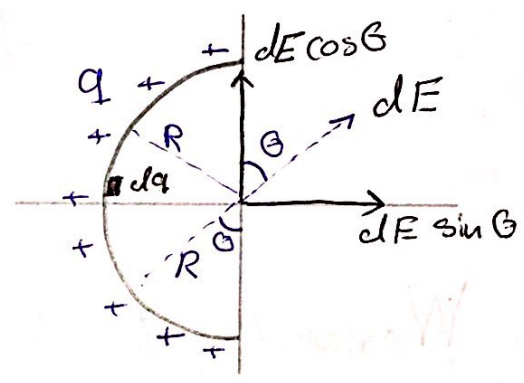 dE cos θ
q
dE
R
θ
dq
dE sin θ
θ
R